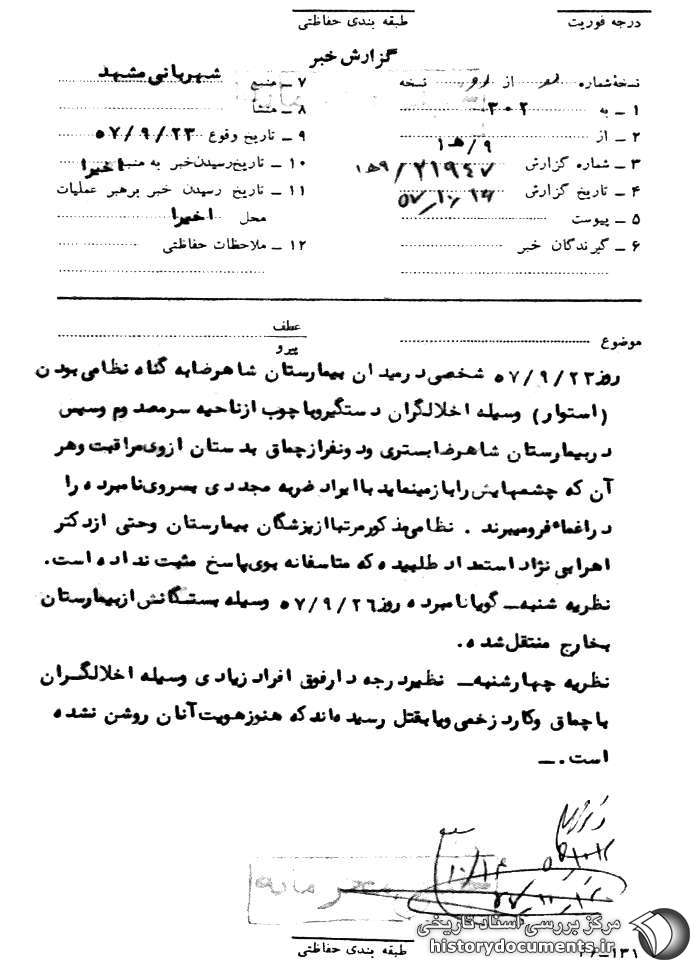 درجه فوریت
طبقه بندی حفاظتی
گزارش خبر
نسخهٔ شماره از نسخه
۱ ــ به ۳۰۲
۲ ــ از ۹/ هـ ۱
۳ ــ شماره گزارش ۲۱۹۴۷/ ۹ هـ ۱
۴ ــ تاریخ گزارش ۵۷/۱۰/۱۴
۵ ــ پیوست
۶ ــ گیرندگان خبر
۷ ــ منبع شهربانی مشهد
۸ ــ منشأ
۹ ــ تاریخ وقوع ۵۷/۹/۲۳
۱۰ ــ تاریخ رسیدن خبر به منبع اخیرا
۱۱ ــ تاریخ رسیدن خبر برهبر عملیات
محل اخیرا
۱۲ ــ ملاحظات حفاظتی
موضوع
عطف
پیرو
روز ۵۷/۹/۲۳ شخصی در میدان بیمارستان شاهرضا به گناه نظامی بودن
(استوار) وسیله اخلالگران دستگیر و با چوب از ناحیه سر مصدوم و سپس
در بیمارستان شاهرضا بستری و دو نفر از چماق بدستان از وی مراقبت و هر
آن که چشمهایش را باز مینماید با ایراد ضربه مجددی بسر وی نامبرده را
در اغماء فرو میبرند . نظامی مذکور مرتبا از پزشگان بیمارستان و حتی از دکتر
اهرابی نژاد استمداد طلبیده که متاسفانه بوی پاسخ مثبت نداده است.
نظریه شنبه ــ گویا نامبرده روز ۵۷/۹/۲۶ وسیله بستگانش از بیمارستان
بخارج منتقل شده .
نظریه چهارشنبه ــ نظیر درجه دار فوق افراد زیادی وسیله اخلالگــران
با چماق و کارد زخمی و یا بقتل رسیده‌اند که هنوز هویت آنان روشن نشده
است . ــ
۱۰/۱۴
مرکز بررسی اسناد تاریخی
historydocuments.ir
طبقه بندی حفاظتی